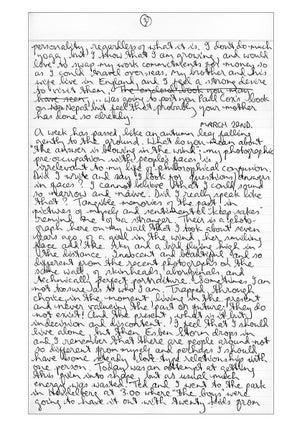 personality, regardless of what it is. I don't do much
yoga, but I know that I am growing, and would
love to swap my work commitments for money so
as I could travel overseas. My brother and his
wife live in England, and I feel a strong desire
to visit them. The book you may
have seen. I was going to post you Paul Cox's book
on Nepal but feel that probably your mother
has done so already.
MARCH 22ND.
A week has passed, like an autumn leaf falling
gently to the ground. What do you mean about
"the answer is blowing in the wind"; my photographic
pre-occupation with people's faces is
irrelevant in any life of philosophical conception.
Did I write and say I look for questions/answers
in faces? I cannot believe that I could sound
so intense and naive. Did I really speak like
that? Tangible memories of the past in
pictures of myself and sentimental keep-sakes
remind me of a strange. There is a photo-
graph here on the wall that I took about seven
years ago of a girl in the wind, her smiling
face and the sky and a bird flying high in
the distance. Innocent and beautiful and so
different from the recent photographs on the
same wall, of skinheads, aboriginals, and
technically perfect portraiture. Sometimes I am
not too sure as to who I am. Trapped, through
choice in the moment, living in the present
and never valuing the past or future; they do
not exist! And the present, what is it but
indecision and discontent. I feel that I should
live alone, but then Esben Storm drops in
and I remember that there are people around not
so different from myself and perhaps I should
have some steady love-type relationship with
one person. Today was an attempt at getting
this film into shape, but as usual much
energy was wasted. Ted and I went to the park
in Heidelberg at 3.00 where "the boys" were
going to have it out with twenty kids from